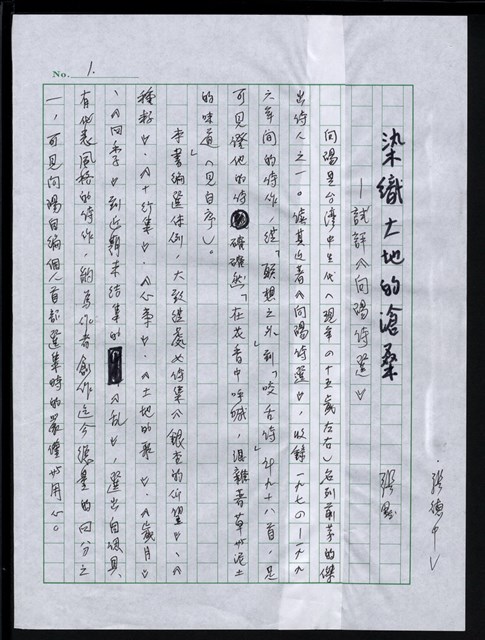 No. 1.
張德中
染織土地的滄桑
張默
—試評《向陽詩選》
向陽是台灣中生代(現年四十五歲左右)名列前茅的傑
出詩人之一。讀其近著《向陽詩選》,收錄一九七四—一九九
六年間的詩作,從「聯想之外」到「咬舌詩」計九十八首,足
可見證他的詩確確然「在花香中呼喊,混雜著草與泥土
的味道」(見自序)。
本書編選体例,大致從處女詩集《銀杏的仰望》、《
種籽》、《十行集》、《心事》、《土地的歌》、《歲月》
、《四季》到近期未結集的《亂》,選出自認具
有代表風格的詩作,約為作者創作迄今總量的四分之
一,可見向陽自編個人首部選集時的嚴謹與用心。